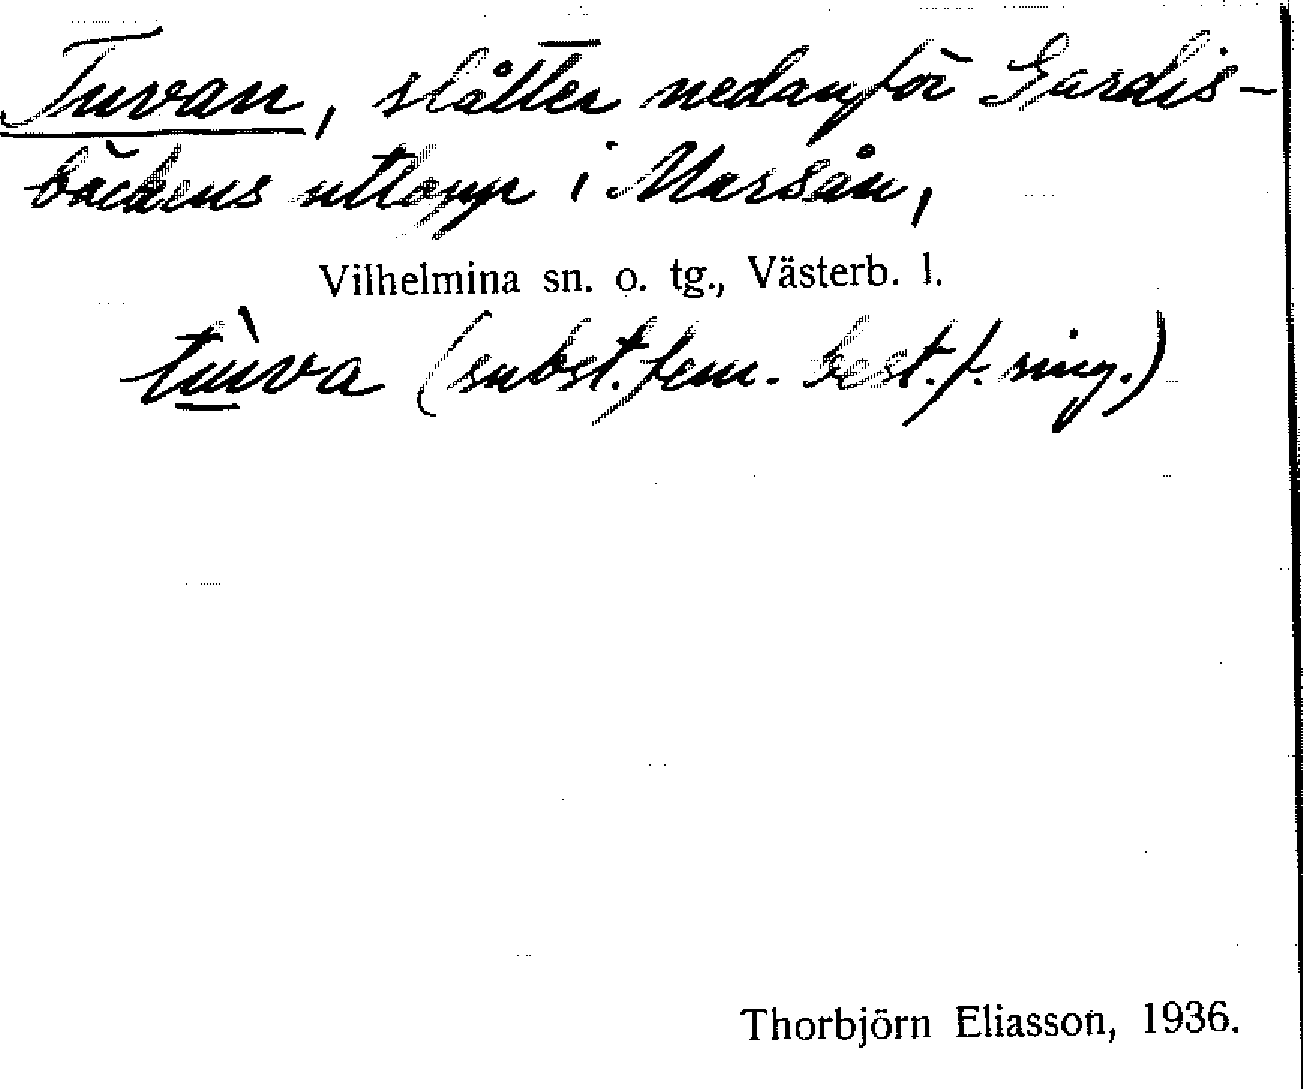 Tuvan, slåtter nedanför Gardis-
bäckens utlopp i Marsån,
Vilhelmina sn. o. tg., Västerb. l.
tùuva (subst. fem. best. f. sing.)
Thorbjörn Eliasson, 1936.